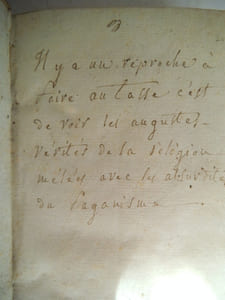 Il y a un reproche à
faire au tasse c'est
de voir les augustes
vérités de la religion
mêlées avec les absurdité
du Paganisme